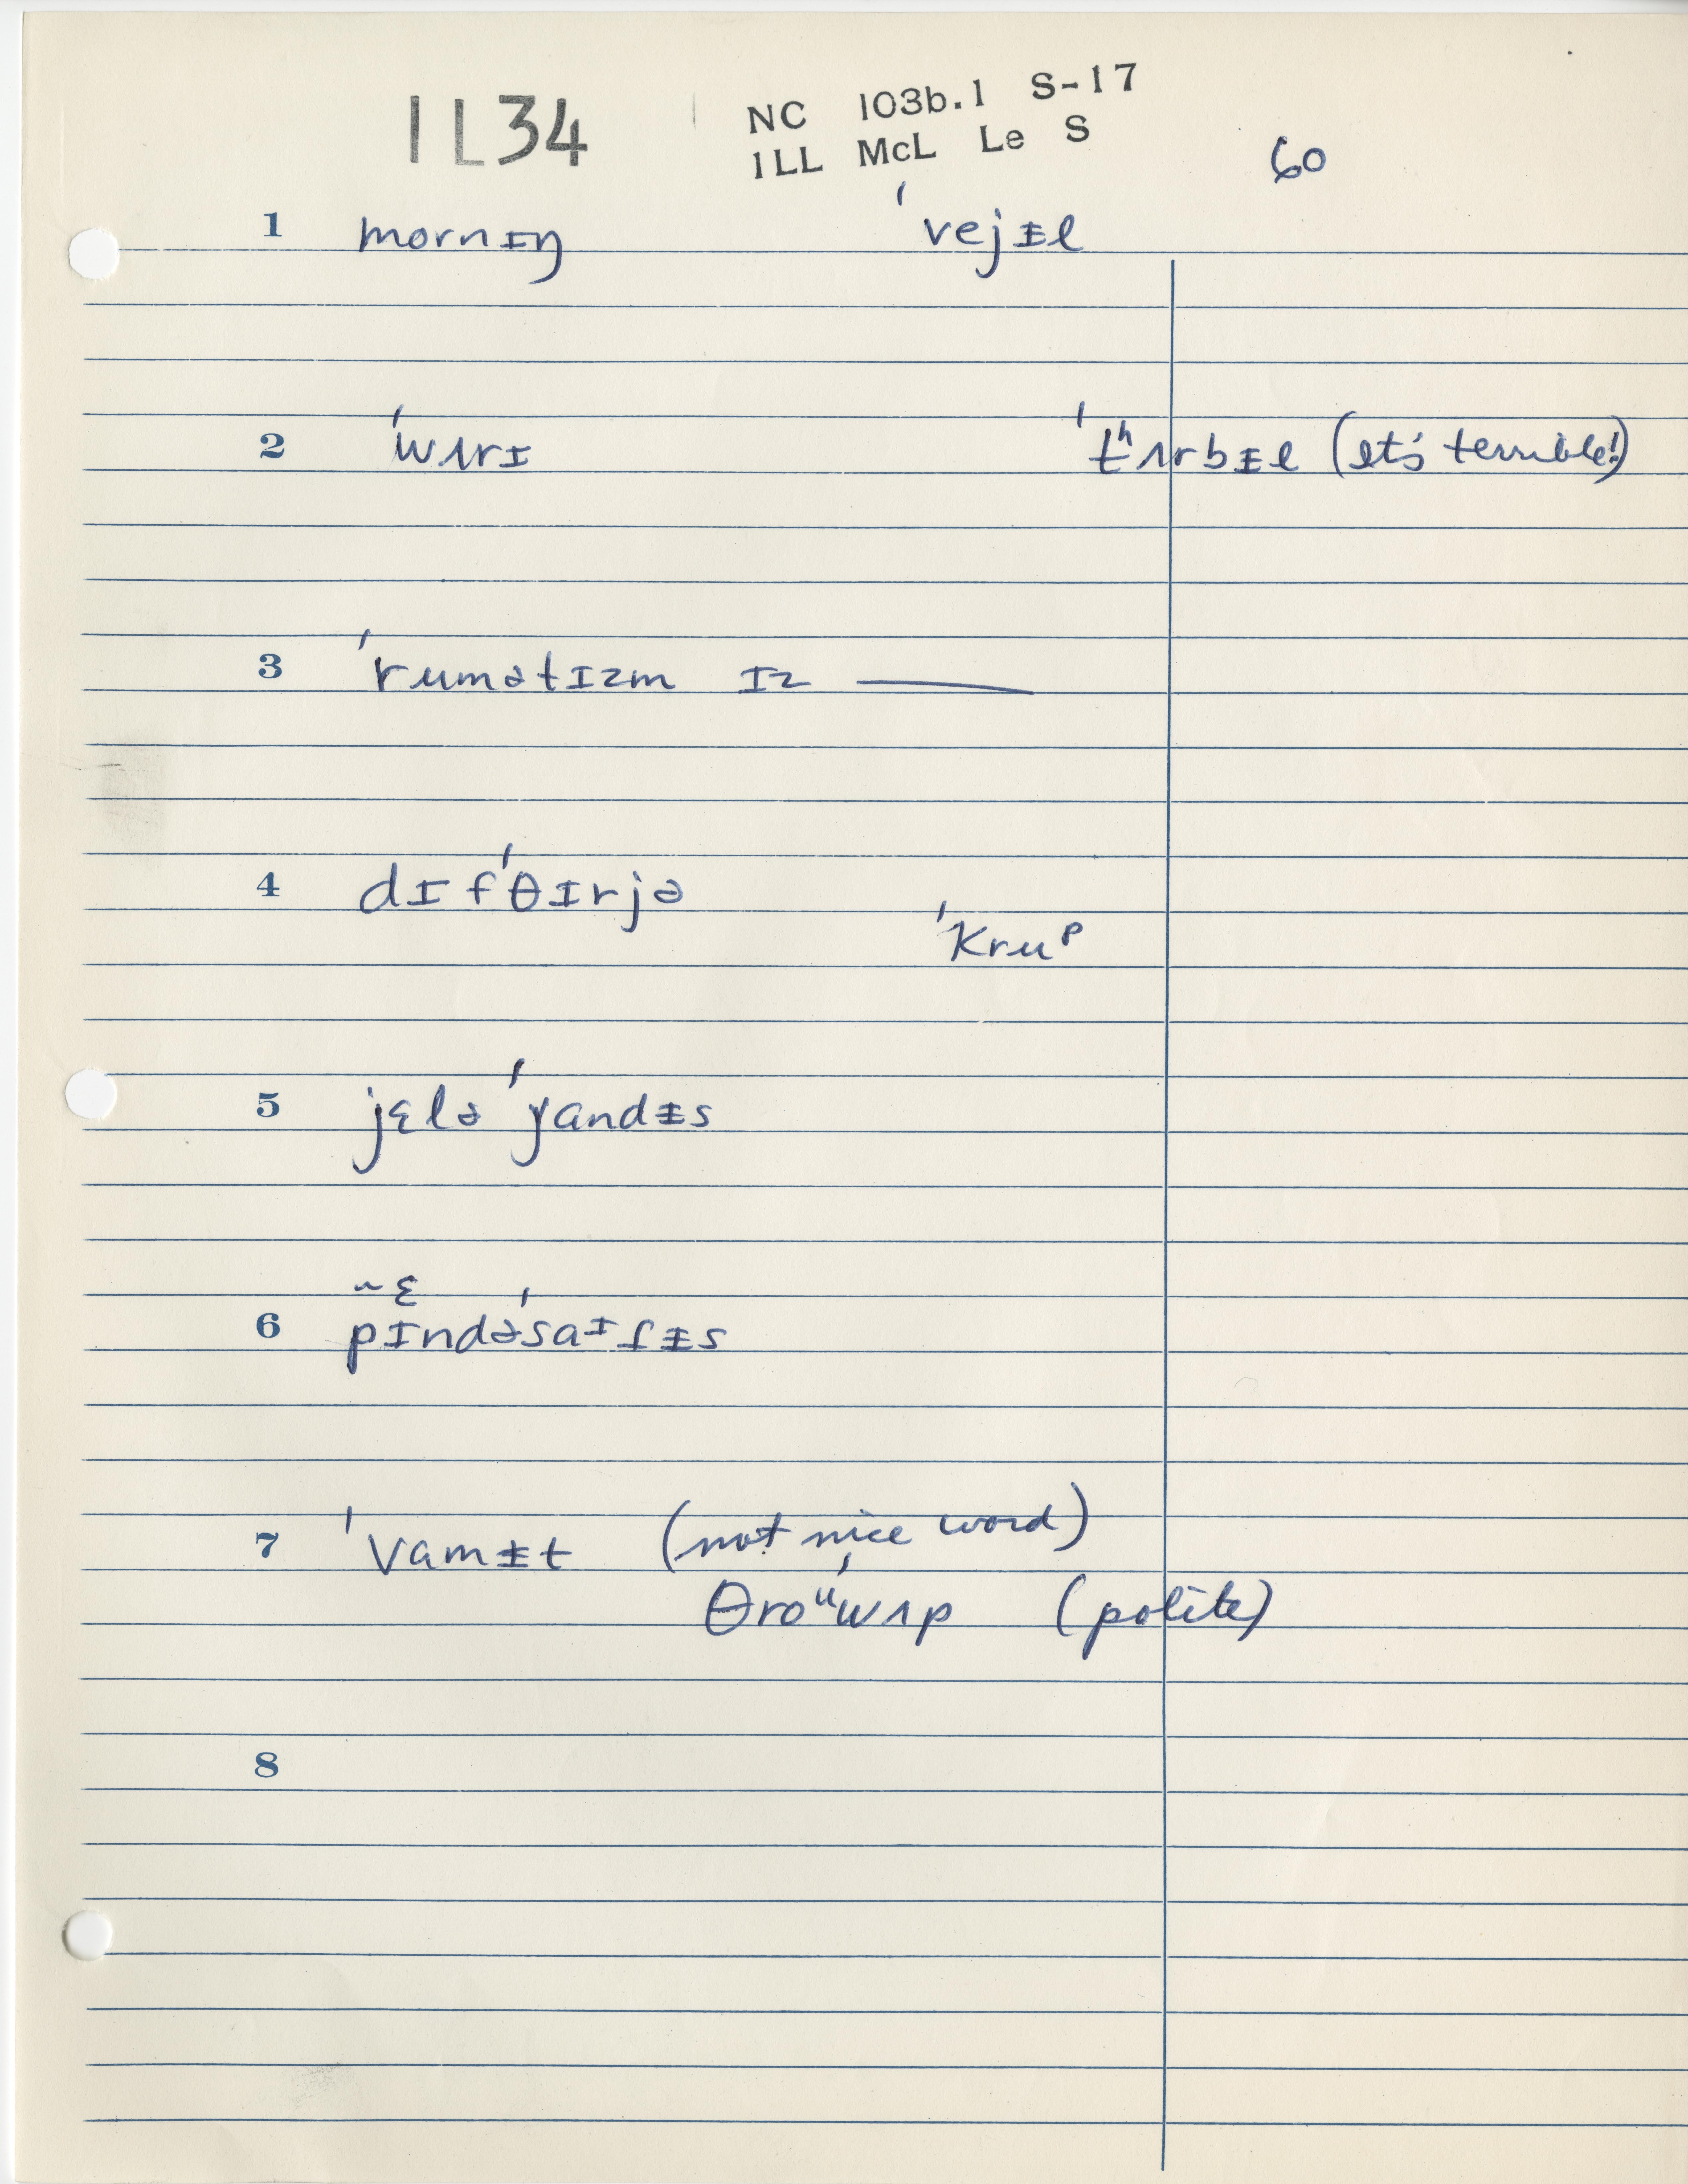 IL34 NC 103b.1 S-17
ILL McL Le S
60
1 mornɪŋ ˈvejɪ̵l
2 ˈwɜrɪ ˈtʰɜrbɪ̵l (It's terrible!)
3 ˈrumətɪzm ɪz ———
4 dɪfˈθɪrjə
ˈkruᵖ
5 jɛlə ˈjandɪ̵s
~ɛ
6 pɪndəˈsaɪfɪ̵s
7 ˈvamɪ̵t (not nice word)
θroᵘˈwʌp (polite)
8